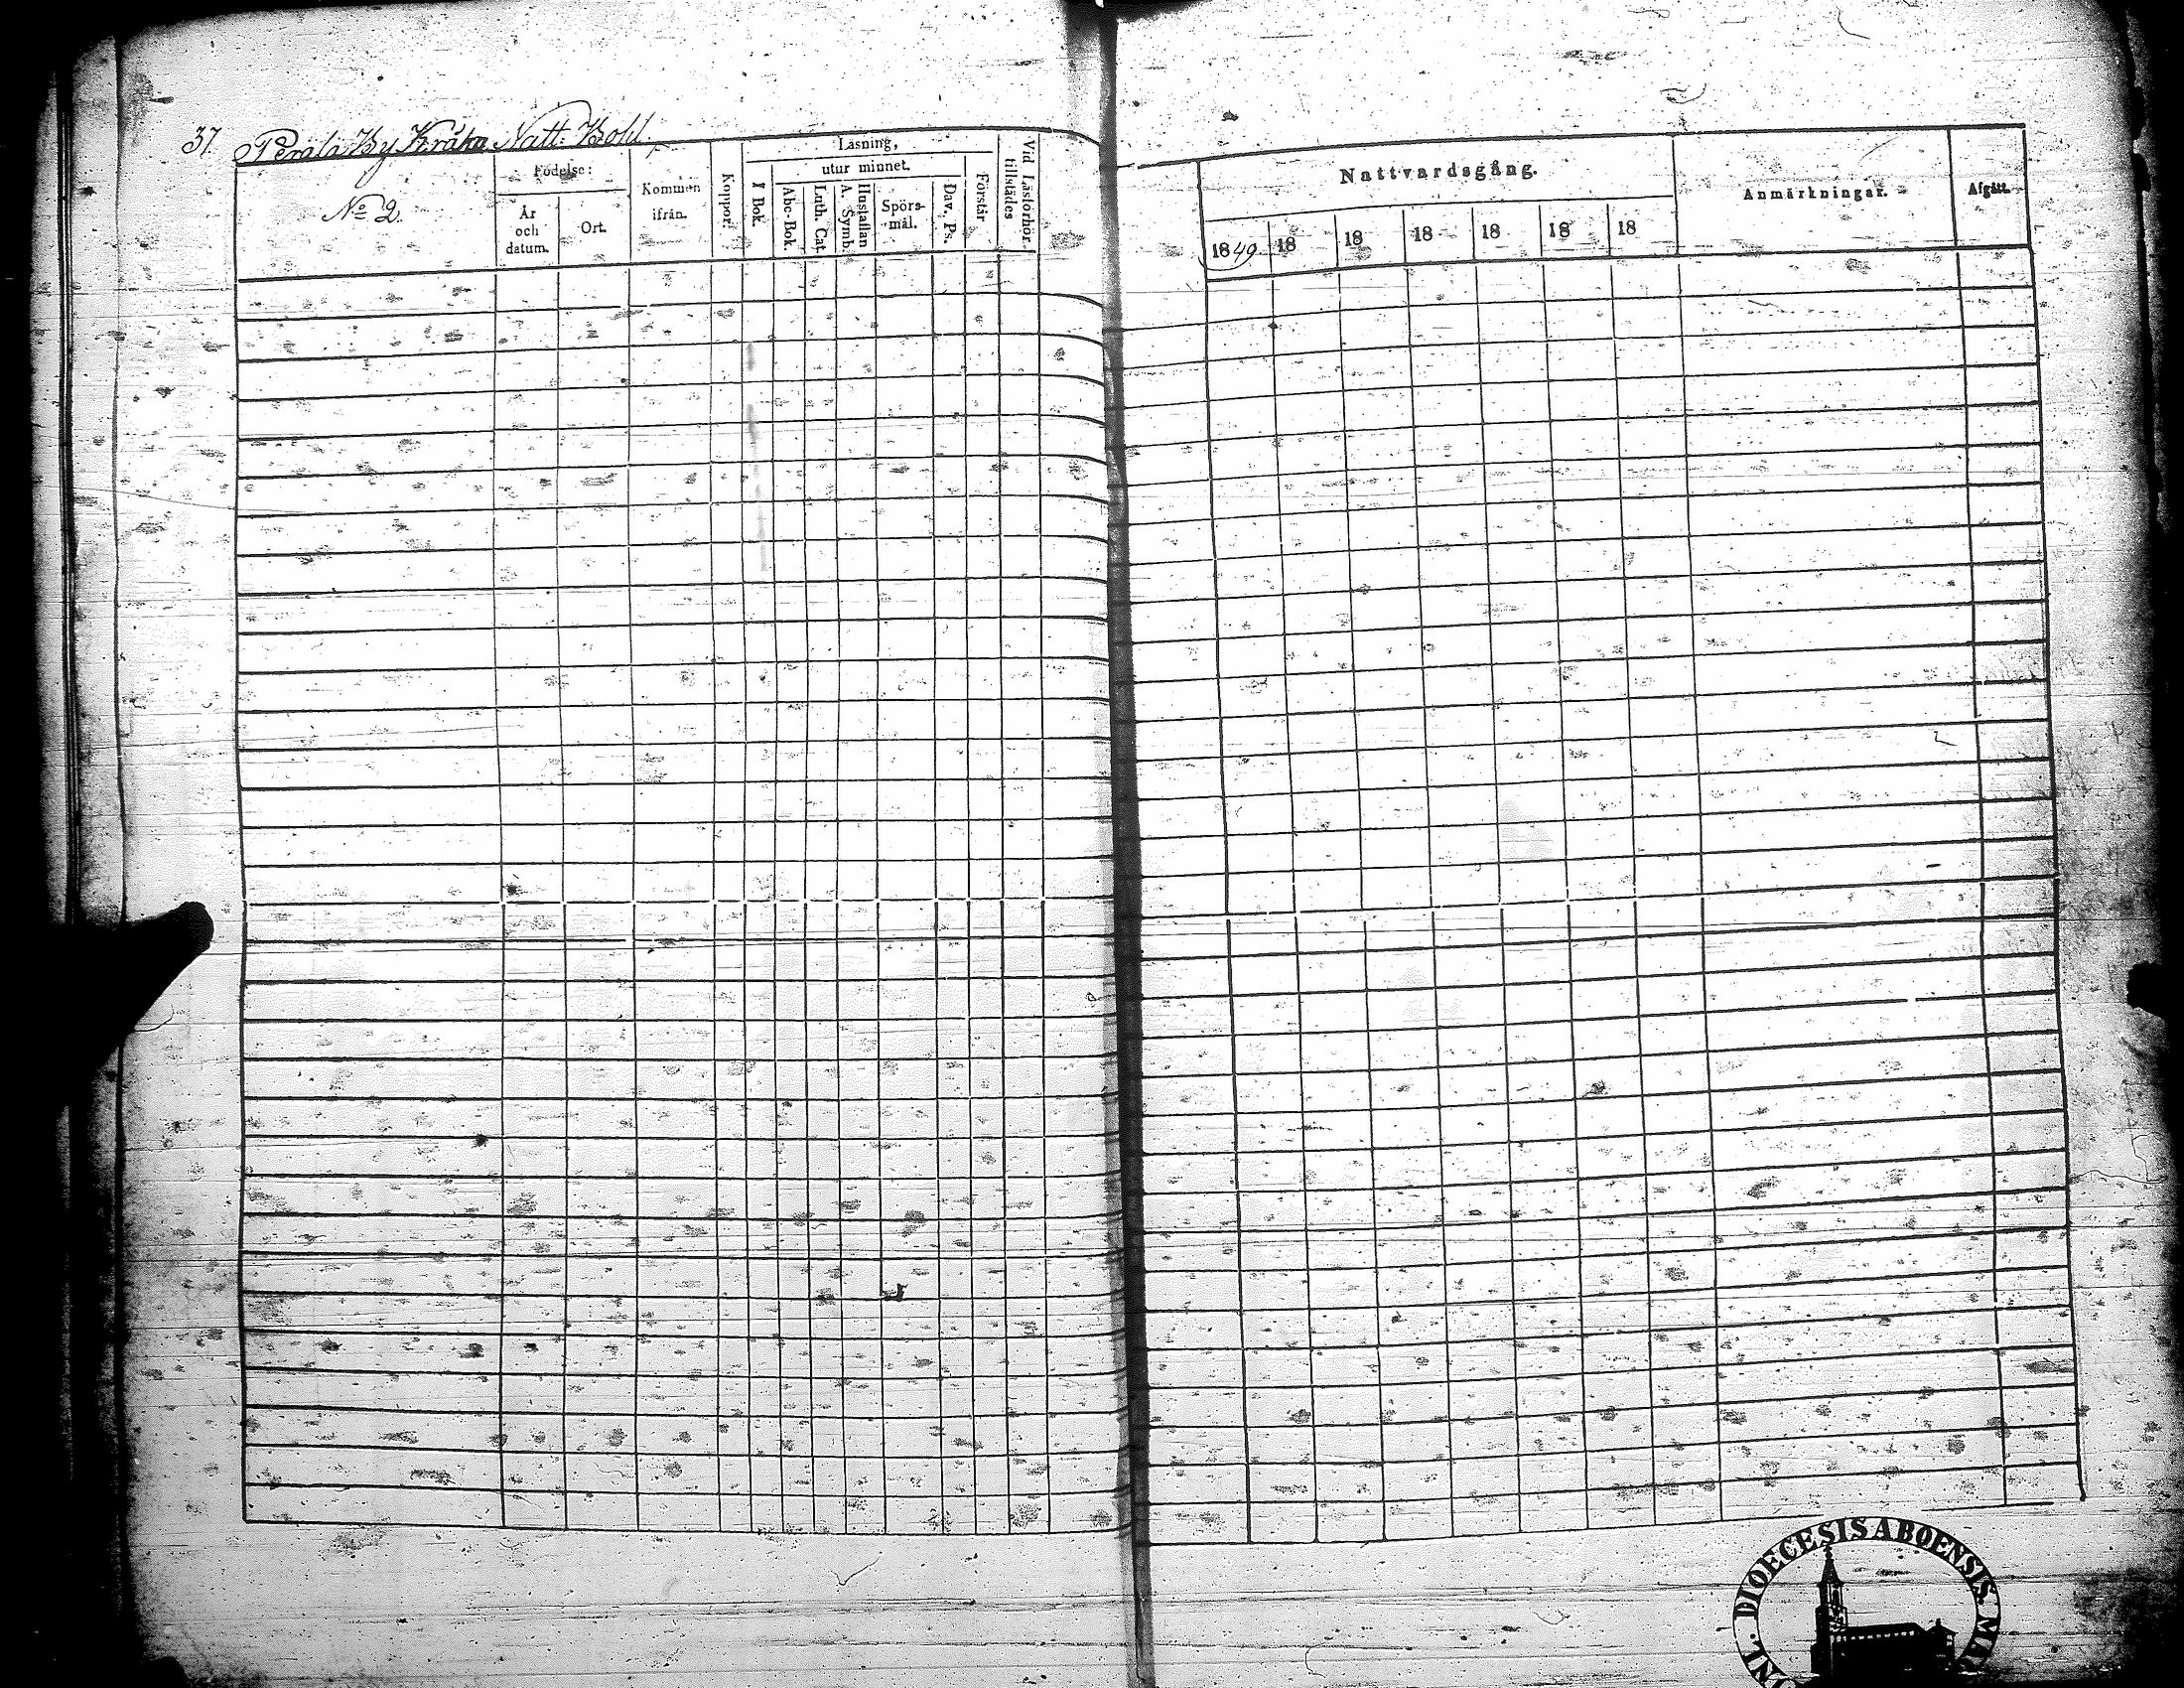 37. Perälä By Kråka Natt. Bohl.
No 2.
Födelse:
År och datum.
Ort.
Kommen ifrån.
Koppor.
Läsning,
utur minnet.
I Bok.
Abc-Bok.
Luth. Cat.
Hustaflan A. Symb.
Spörsmål.
Dav. Ps.
Förstår
Vid Läsförhör tillstädes
Nattvardsgång.
1849. 18 18 18 18 18 18
Anmärkningar.
Afgått.
DIOECESIS ABOENSIS